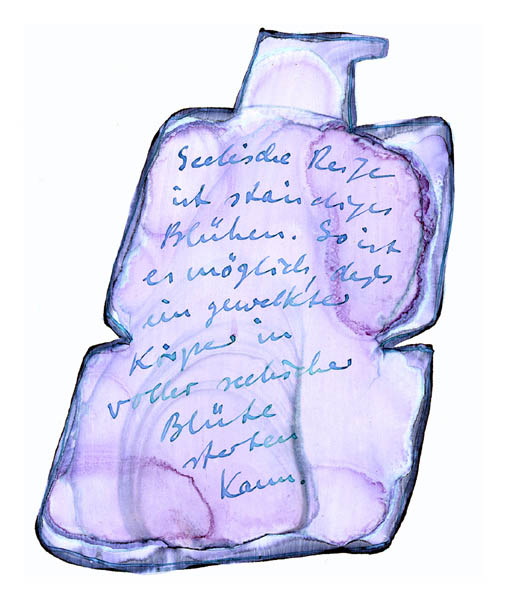 Seelische Reife
ist ständiges
Blühen. So ist
es möglich, dass
ein gewelkter
Körper in
voller seelischer
Blüte
sterben
kann.